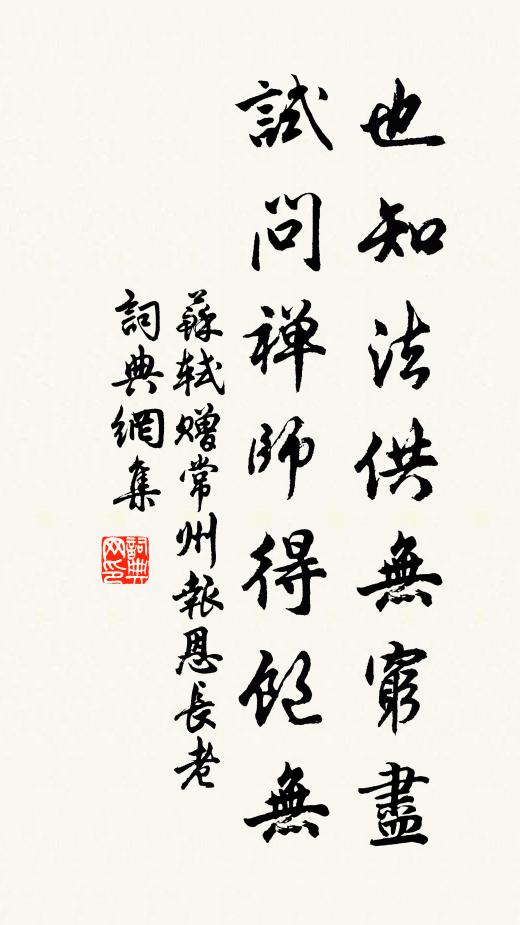 也知法供無窮盡
試問禅師得飽無
蘇軾贈常州報恩長老
詞典網集
詞典网印